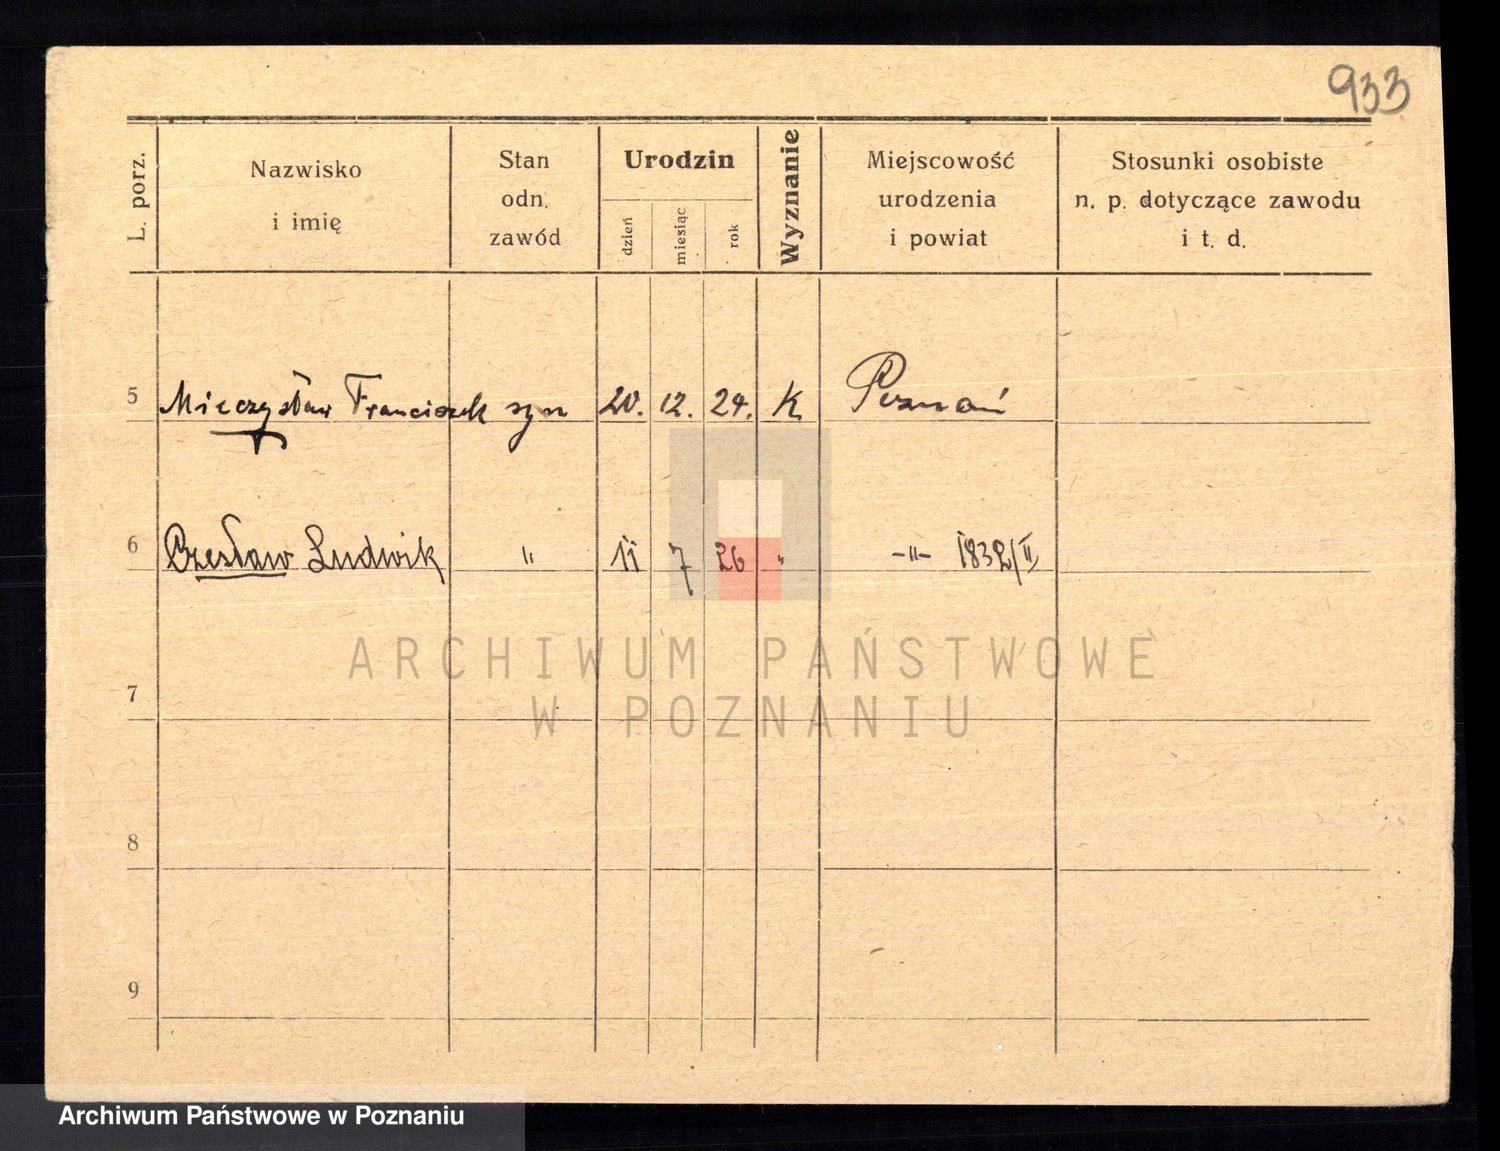 933
L. porz.
Nazwisko
i imię
Stan
odn.
zawód
Urodzin
dzień
miesiąc
rok
Wyznanie
Miejscowość
urodzenia
i powiat
Stosunki osobiste
n. p. dotyczące zawodu
i t. d.
5 Mieczysław Franciszek syn 20. 12. 24. K Poznań
6 Czesław Ludwik " 11 7 26 " -"- 1832/II
7
8
9
ARCHIWUM PAŃSTWOWE
W POZNANIU
Archiwum Państwowe w Poznaniu